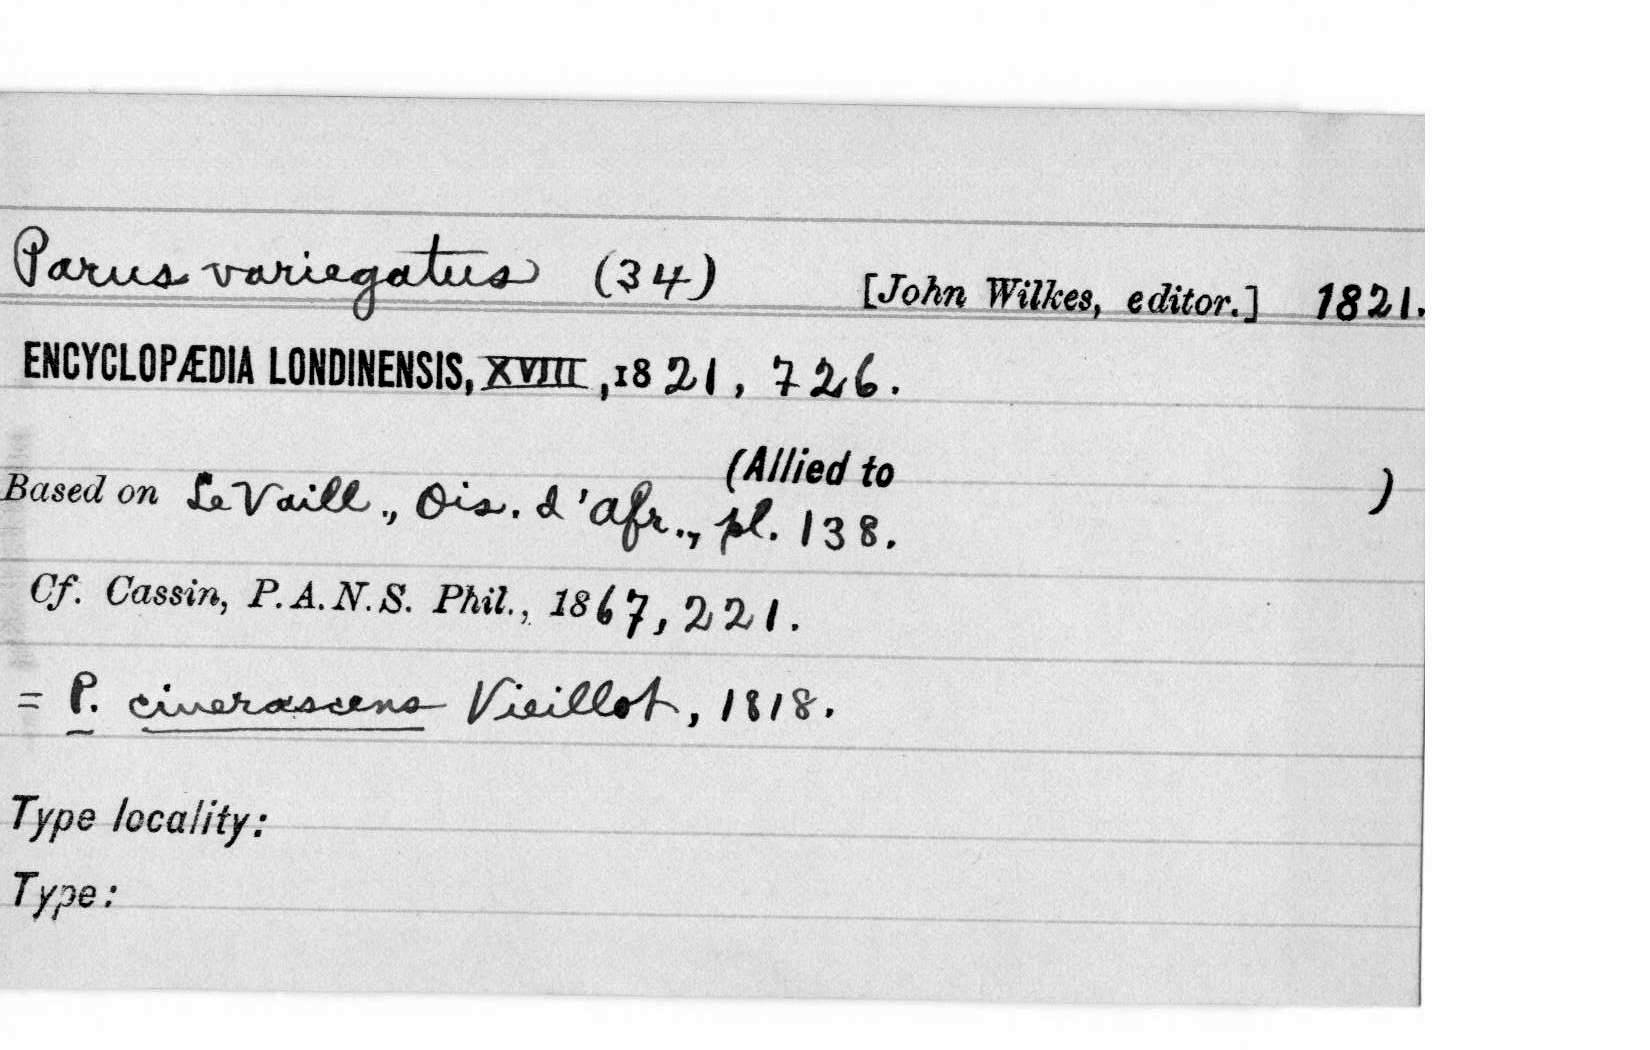 Parus variegatus (34) [John Wilkes, editor.] 1821.
ENCYCLOPÆDIA LONDINENSIS, XVIII, 1821, 726.
(Allied to )
Based on Le Vaill., Ois. d'Afr., pl. 138.
Cf. Cassin, P.A.N.S. Phil., 1867, 221.
= P. cinerascens Vieillot, 1818.
Type locality:
Type: